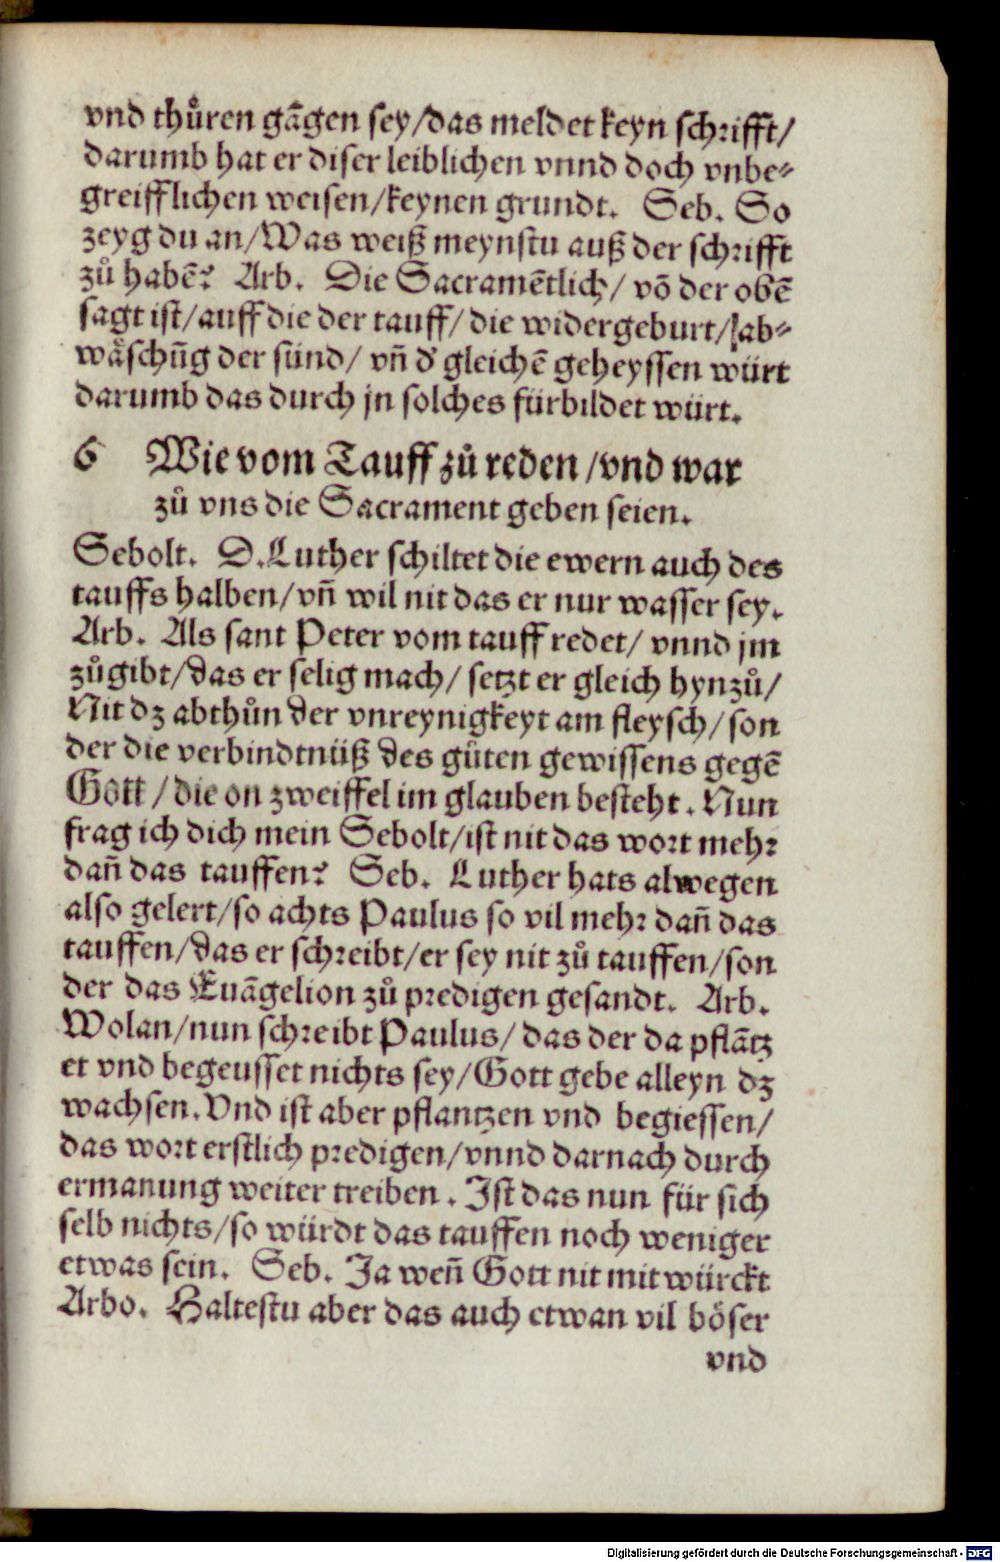 vnd thuͤren gãgen sey/das meldet keyn schrifft/
darumb hat er diser leiblichen vnnd doch vnbe⸗
greifflichen weisen/keynen grundt. Seb. So
zeyg du an/Was weiß meynstu auß der schrifft
zuͦ habẽ? Arb. Die Sacramẽtlich/ võ der obẽ
sagt ist/auff die der tauff/ die widergeburt/ab⸗
waͤschũg der sünd/ vñ d' gleichẽ geheyssen würt
darumb das durch jn solches fürbildet würt.
6 Wie vom Tauff zuͦ reden/vnd war
zuͦ vns die Sacrament geben seien.
Sebolt. D.Luther schiltet die ewern auch des
tauffs halben/vñ wil nit das er nur wasser sey.
Arb. Als sant Peter vom tauff redet/ vnnd jm
zuͦgibt/das er selig mach/ setzt er gleich hynzuͦ/
Nit dz abthuͦn der vnreynigkeyt am fleysch/son
der die verbindtnüß des guͦten gewissens gegẽ
Gott/die on zweiffel im glauben besteht. Nun
frag ich dich mein Sebolt/ist nit das wort mehr
dañ das tauffen? Seb. Luther hats alwegen
also gelert/so achts Paulus so vil mehr dañ das
tauffen/das er schreibt/er sey nit zuͦ tauffen/son
der das Euãgelion zuͦ predigen gesandt. Arb.
Wolan/nun schreibt Paulus/ das der da pflãtz
et vnd begeusset nichts sey/Gott gebe alleyn dz
wachsen.Vnd ist aber pflantzen vnd begiessen/
das wort erstlich predigen/vnnd darnach durch
ermanung weiter treiben. Ist das nun für sich
selb nichts/so würdt das tauffen noch weniger
etwas sein. Seb. Ja weñ Gott nit mit würckt
Arbo. Haltestu aber das auch etwan vil boͤser
vnd
Digitalisierung gefördert durch die Deutsche Forschungsgemeinschaft - DFG